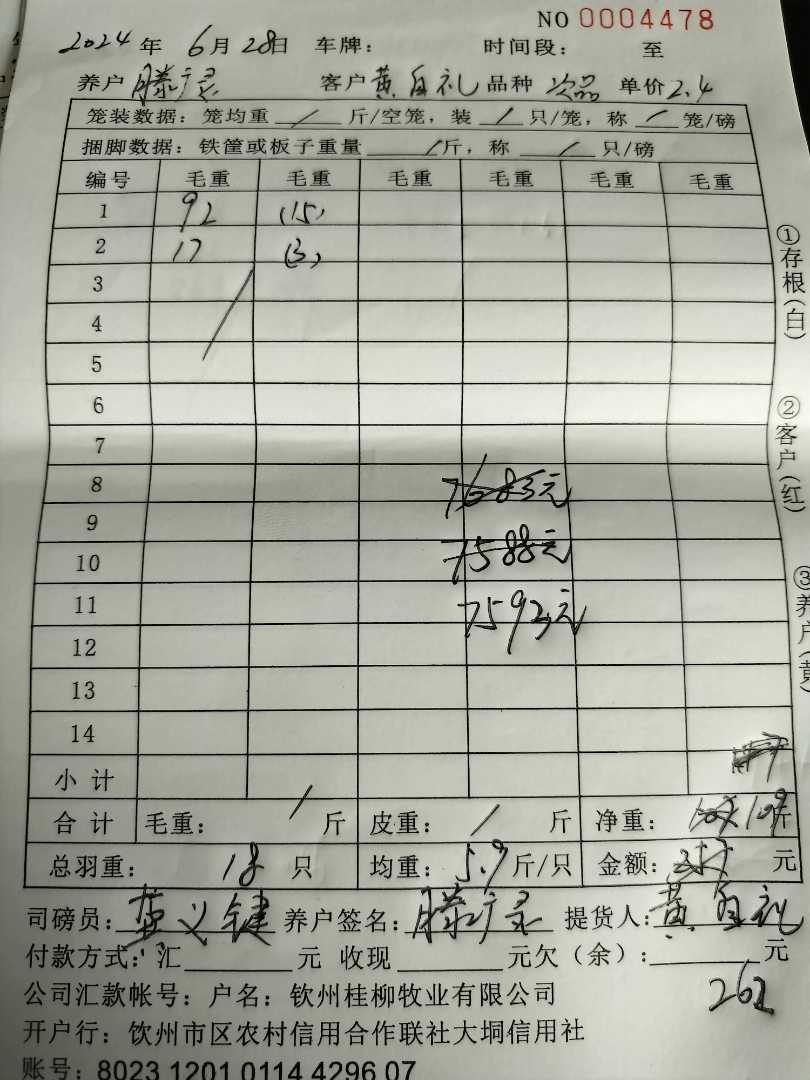 NO 0004478
2024年 6月 28日 车牌： 时间段： 至
养户 滕广灵 客户 黄自礼 品种 次品 单价 2.4
笼装数据：笼均重 / 斤/空笼，装 / 只/笼，称 / 笼/磅
捆脚数据：铁筐或板子重量 / 斤，称 / 只/磅
编号 毛重 毛重 毛重 毛重 毛重 毛重
1 92 (15)
2 17 (3)
3
4
5
6
7
8 7683元
9
10 7588元
11 7592元
12
13
14
小计
合计 毛重： / 斤 皮重： / 斤 净重： 109 斤
总羽重： 18 只 均重： 5.9 斤/只 金额： 元
司磅员： 黄义键 养户签名： 滕广灵 提货人： 黄自礼
付款方式：汇 元 收现 元欠（余）： 元
262
公司汇款帐号：户名：钦州桂柳牧业有限公司
开户行：饮州市区农村信用合作联社大垌信用社
账号：8023 1201 0114 4296 07
①存根(白)
②客户(红)
③养户(黄)